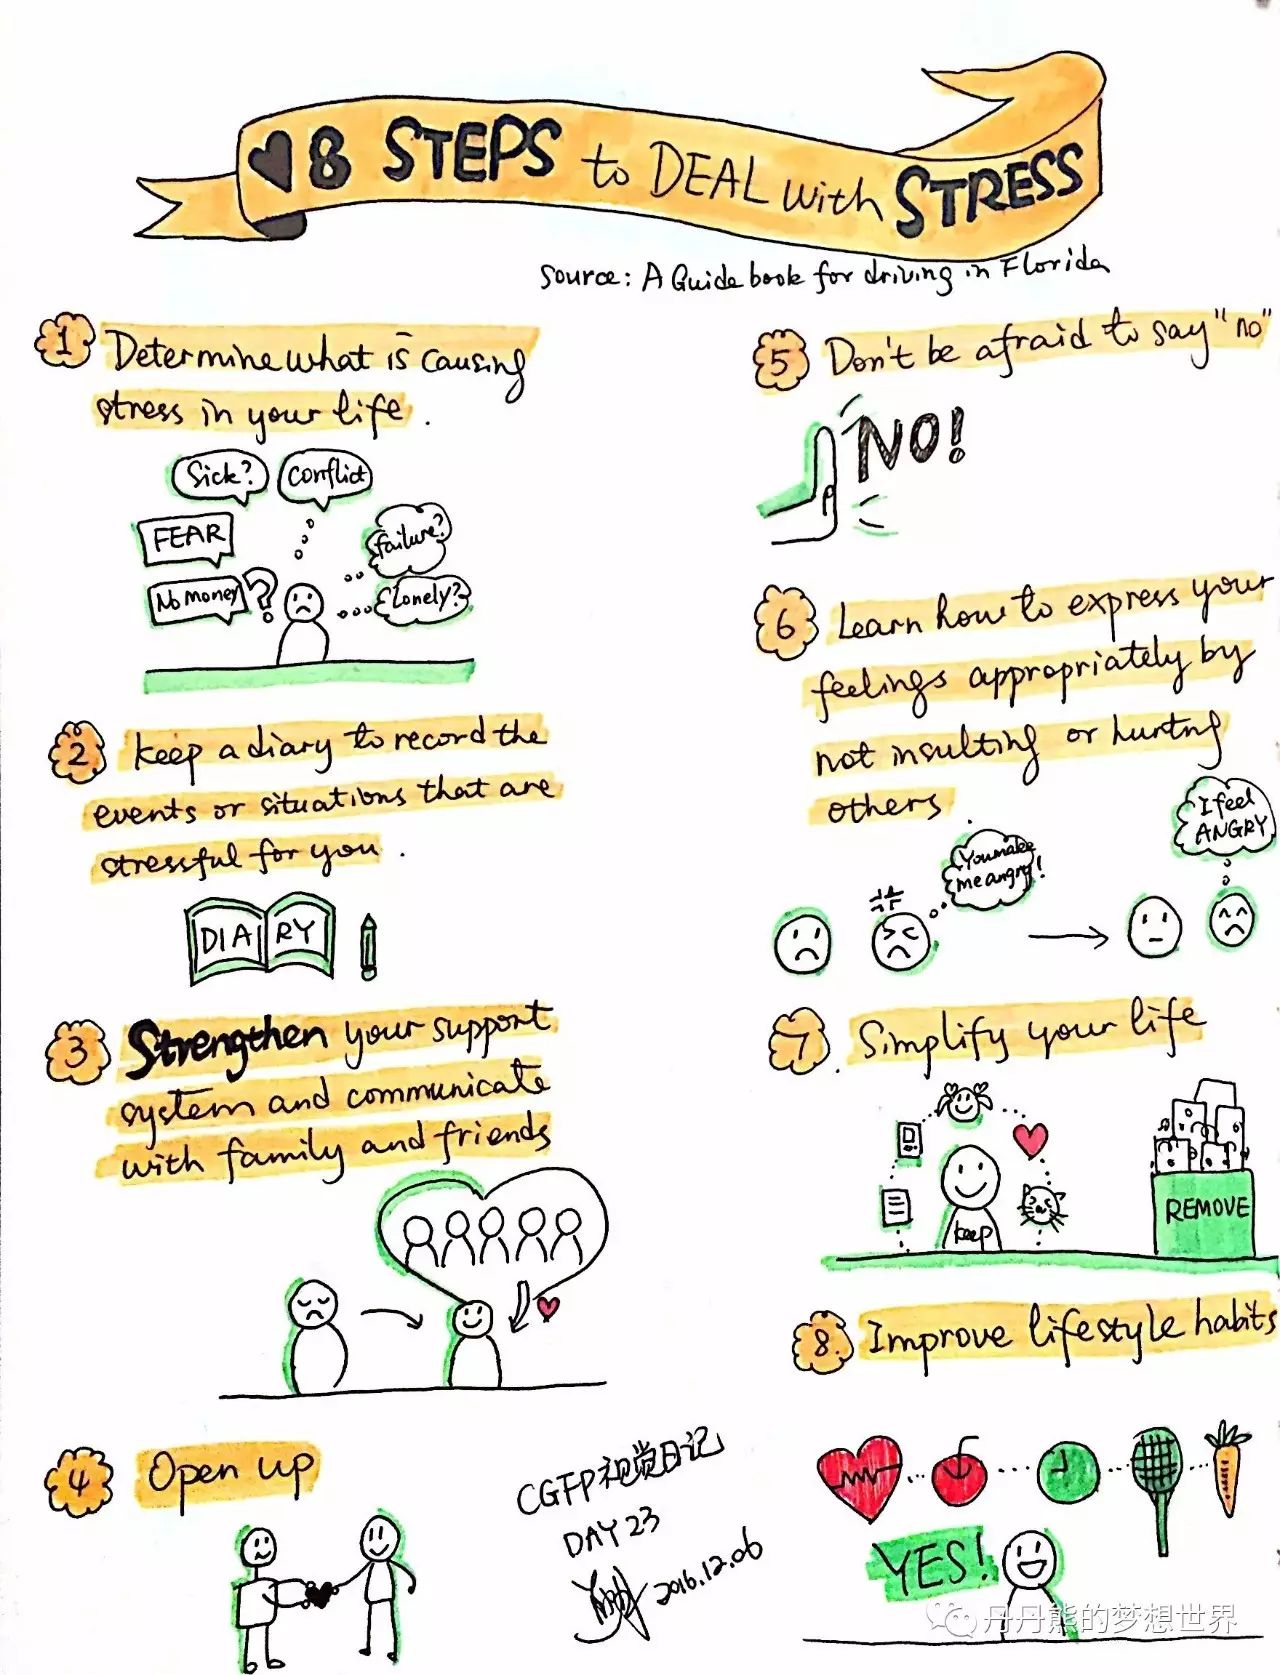 8 STEPS to DEAL with STRESS
Source: A Guide book for driving in Florida
1 Determine what is causing
stress in your life.
Sick?
conflict
FEAR
failure?
No money
?
Lonely?
2 keep a diary to record the
events or situations that are
stressful for you.
DIARY
3 Strengthen your support
system and communicate
with family and friends
4 Open up
CGFP视觉日记
DAY 23
2016.12.06
5 Don't be afraid to say "no"
NO!
6 Learn how to express your
feelings appropriately by
not insulting or hurting
others.
I feel
ANGRY
You make
me angry!
7 Simplify your life
keep
REMOVE
8. Improve lifestyle habits
YES!
丹丹熊的梦想世界